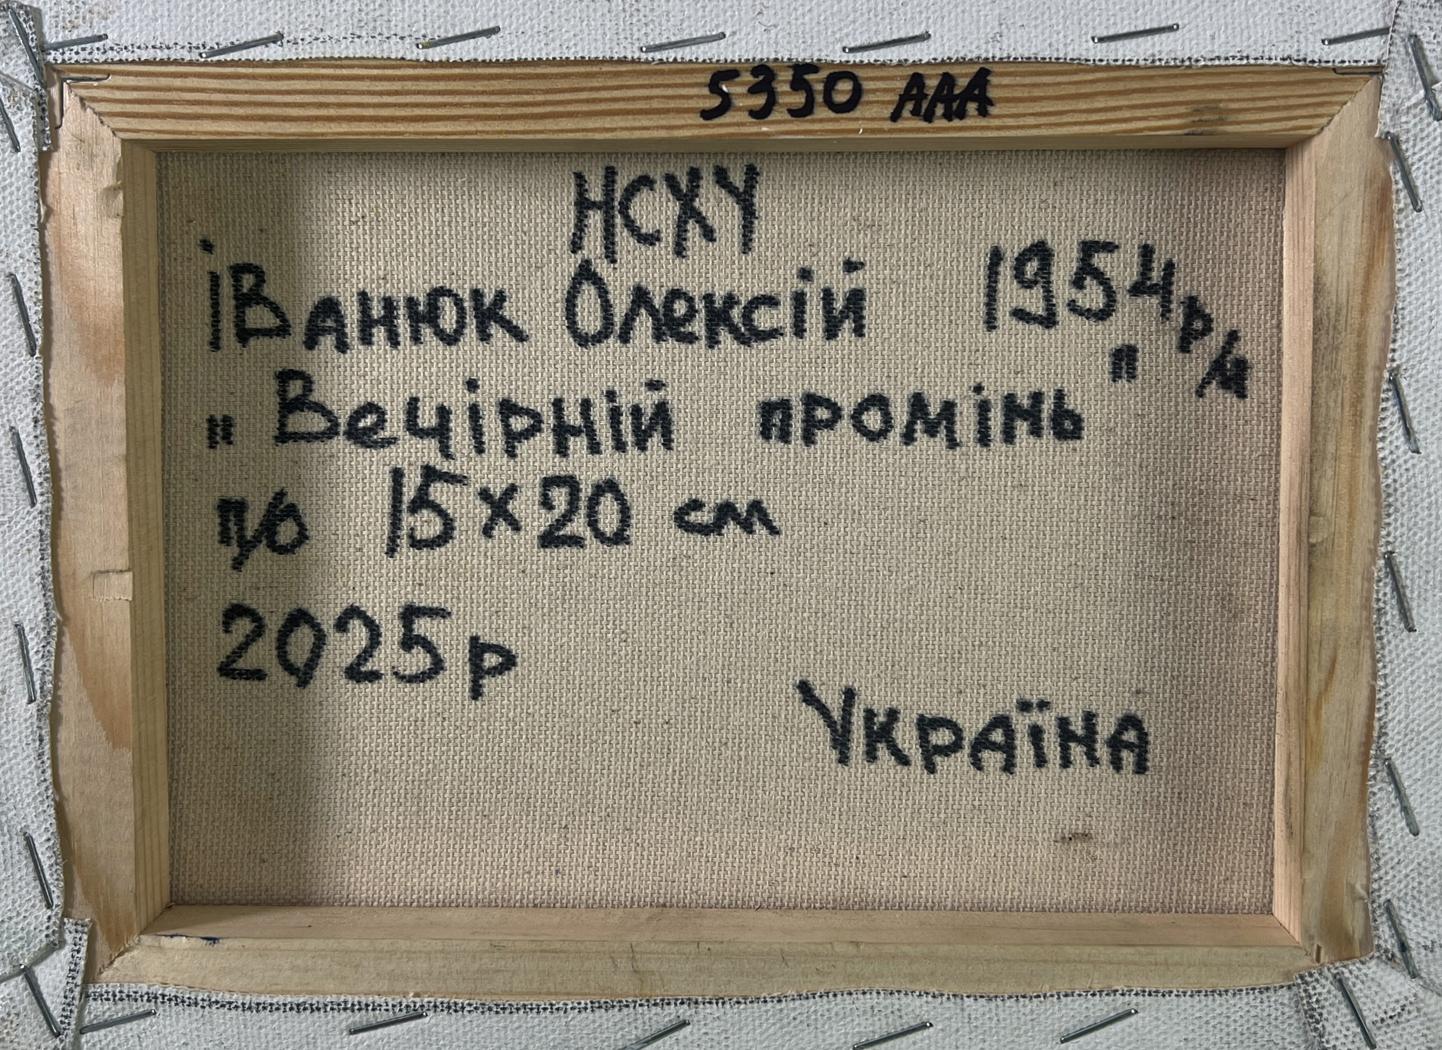 5350 ААА
НСХУ
Іванюк Олексій 1954 р/н
„Вечірній промінь"
п/о 15×20 см
2025 р
Україна